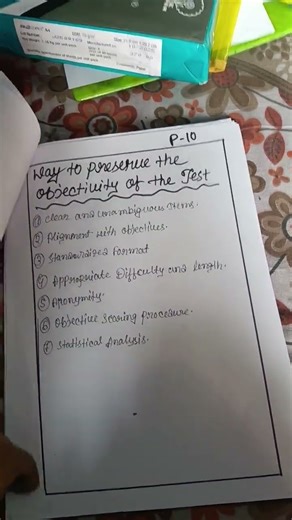 P-10
Way to preserve the
objectivity of the Test
① Clear and unambiguous Items.
② Alignment with objectives.
③ Standardized Format
④ Appropriate Difficulty and length.
⑤ Anonymity.
⑥ Objective scoring procedure.
⑦ Statistical Analysis.